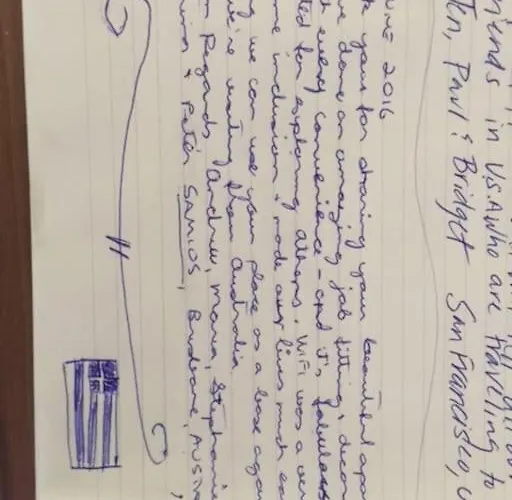 friends in USA who are traveling to
Paul & Bridget San Francisco,
2016
you for sharing your beautiful
done an amazing job fitting,
every convenience - and it's fabulous
for exploring Athens. WiFi was a
inclusion & made our lives much
we can use your place as a base again
we're visiting from Australia
Regards Andrew, Maria, Stephanie
& Peter SAMIOS,